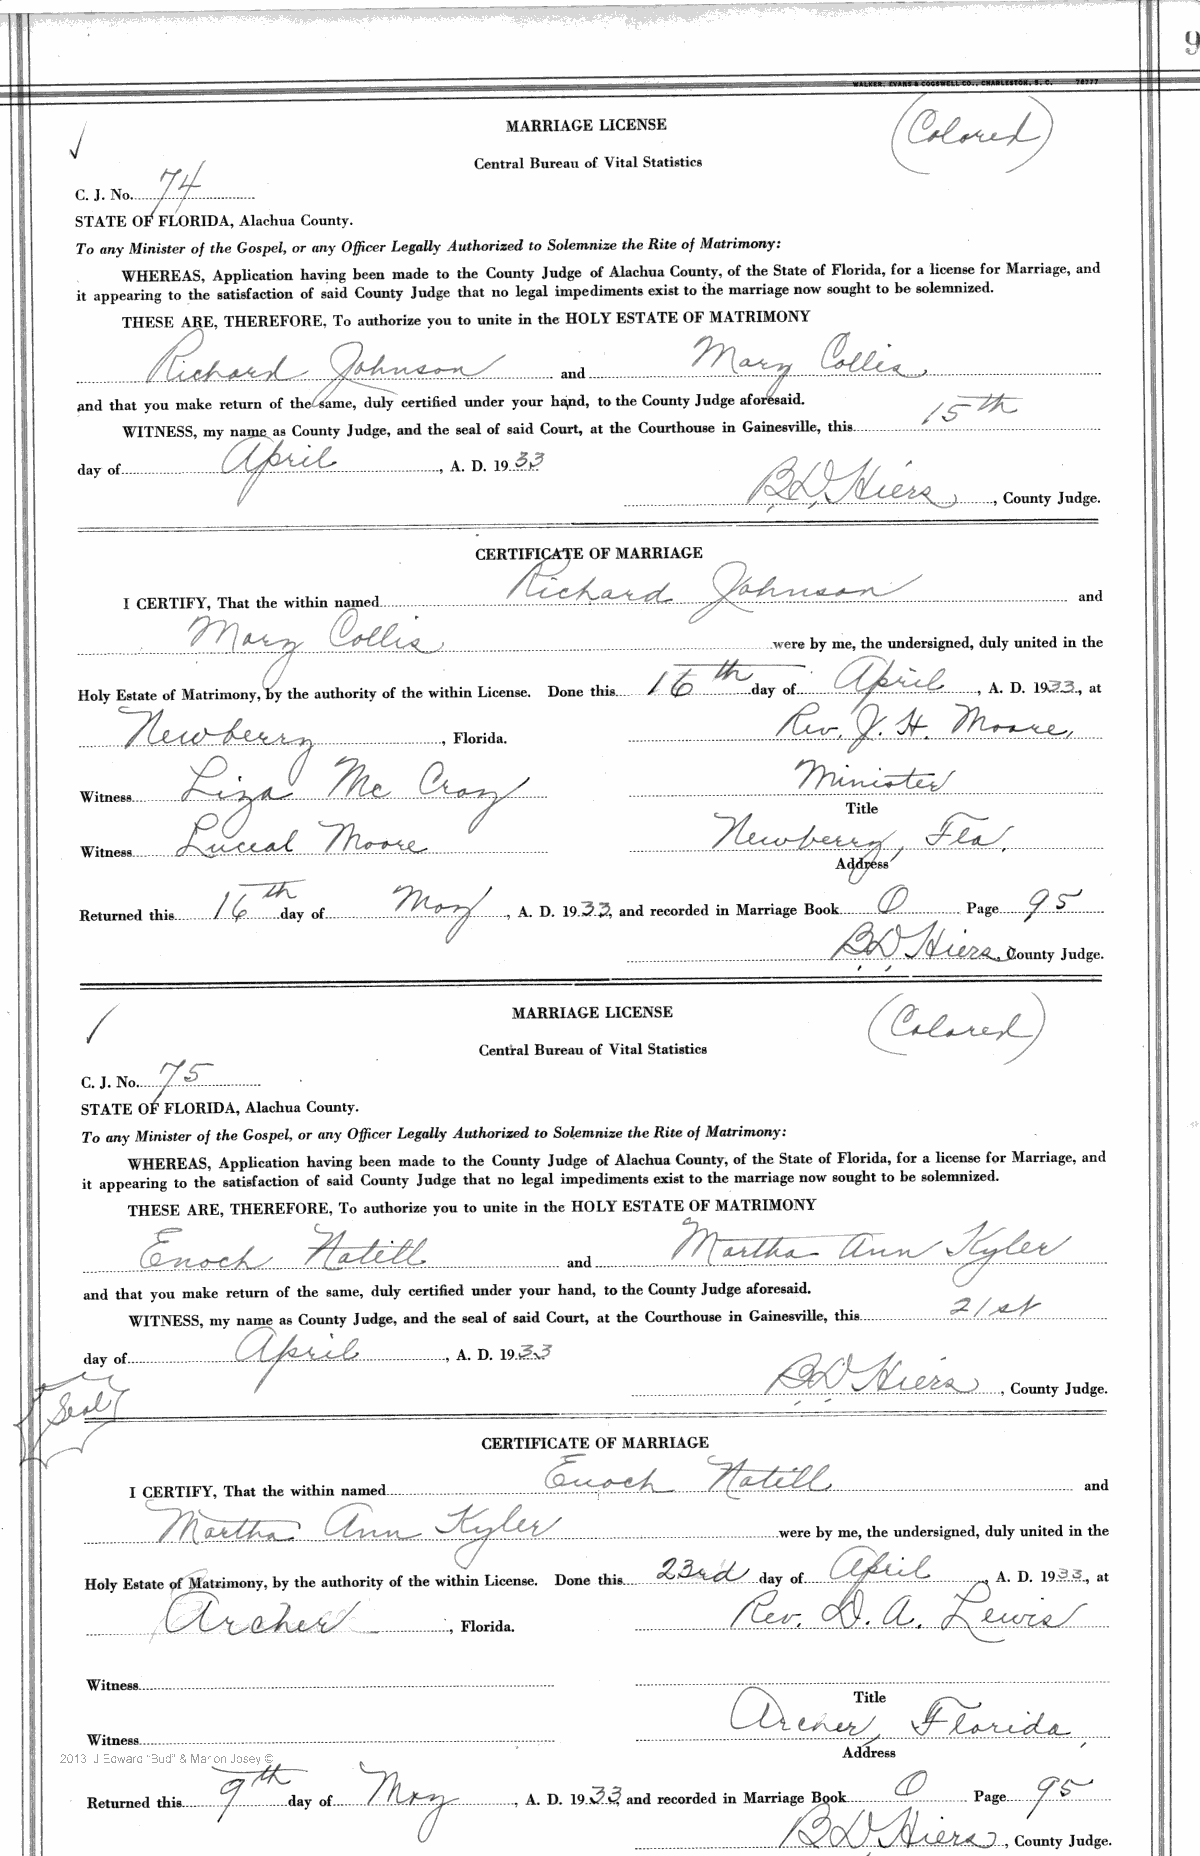 9
WALKER, EVANS & COGSWELL CO., CHARLESTON, S. C. 78777
MARRIAGE LICENSE
(Colored)
Central Bureau of Vital Statistics
C. J. No. 74
STATE OF FLORIDA, Alachua County.
To any Minister of the Gospel, or any Officer Legally Authorized to Solemnize the Rite of Matrimony:
WHEREAS, Application having been made to the County Judge of Alachua County, of the State of Florida, for a license for Marriage, and
it appearing to the satisfaction of said County Judge that no legal impediments exist to the marriage now sought to be solemnized.
THESE ARE, THEREFORE, To authorize you to unite in the HOLY ESTATE OF MATRIMONY
Richard Johnson and Mary Collis
and that you make return of the same, duly certified under your hand, to the County Judge aforesaid.
WITNESS, my name as County Judge, and the seal of said Court, at the Courthouse in Gainesville, this 15th
day of April, A. D. 1933
B. D. Hiers, County Judge.
CERTIFICATE OF MARRIAGE
I CERTIFY, That the within named Richard Johnson and
Mary Collis were by me, the undersigned, duly united in the
Holy Estate of Matrimony, by the authority of the within License. Done this 16th day of April, A. D. 1933, at
Newberry, Florida. Rev. J. H. Moore,
Witness Liza Mc Cray Minister
Title
Witness Luceal Moore Newberry, Fla.
Address
Returned this 16th day of May, A. D. 1933, and recorded in Marriage Book O Page 95
B. D. Hiers, County Judge.
MARRIAGE LICENSE
(Colored)
Central Bureau of Vital Statistics
C. J. No. 75
STATE OF FLORIDA, Alachua County.
To any Minister of the Gospel, or any Officer Legally Authorized to Solemnize the Rite of Matrimony:
WHEREAS, Application having been made to the County Judge of Alachua County, of the State of Florida, for a license for Marriage, and
it appearing to the satisfaction of said County Judge that no legal impediments exist to the marriage now sought to be solemnized.
THESE ARE, THEREFORE, To authorize you to unite in the HOLY ESTATE OF MATRIMONY
Enoch Natill and Martha Ann Kyler
and that you make return of the same, duly certified under your hand, to the County Judge aforesaid.
WITNESS, my name as County Judge, and the seal of said Court, at the Courthouse in Gainesville, this 21st
day of April, A. D. 1933
B. D. Hiers, County Judge.
Seal
CERTIFICATE OF MARRIAGE
I CERTIFY, That the within named Enoch Natill and
Martha Ann Kyler were by me, the undersigned, duly united in the
Holy Estate of Matrimony, by the authority of the within License. Done this 23rd day of April, A. D. 1933, at
Archer, Florida. Rev. D. A. Lewis
Witness
Title
Witness Archer, Florida,
Address
2013 J Edward "Bud" & Marion Josey ©
Returned this 9th day of May, A. D. 1933, and recorded in Marriage Book O Page 95
B. D. Hiers, County Judge.